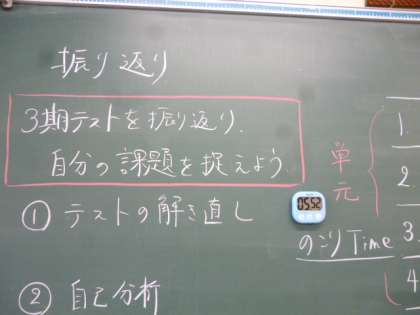 振り返り
3期テストを振り返り、
自分の課題を捉えよう
① テストの解き直し
② 自己分析
単元
05:52
のこりTime
1.
2
3
4